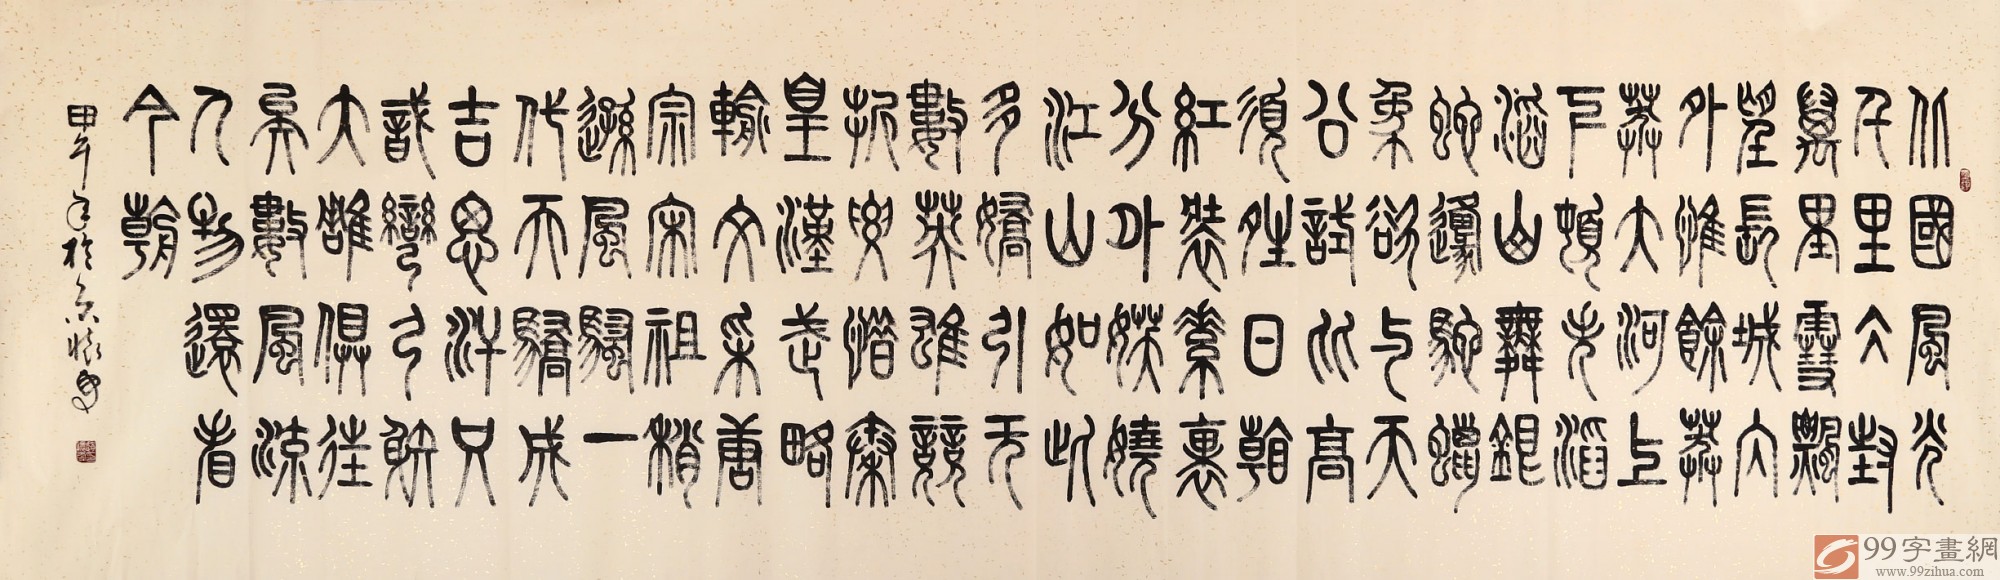 北國風光
千里冰封
萬里雪飄
望長城內
外惟餘莽
莽大河上
下頓失滔
滔山舞銀
蛇原馳蠟
象欲与天
公試比高
須晴日看
紅裝素裹
分外妖嬈
江山如此
多嬌引无
數英雄競
折腰惜秦
皇漢武略
輸文采唐
宗宋祖稍
遜風騷一
代天驕成
吉思汗只
識彎弓射
大雕俱往
矣數風流
人物還看
今朝
甲午年於京
99字畫網
www.99zihua.com